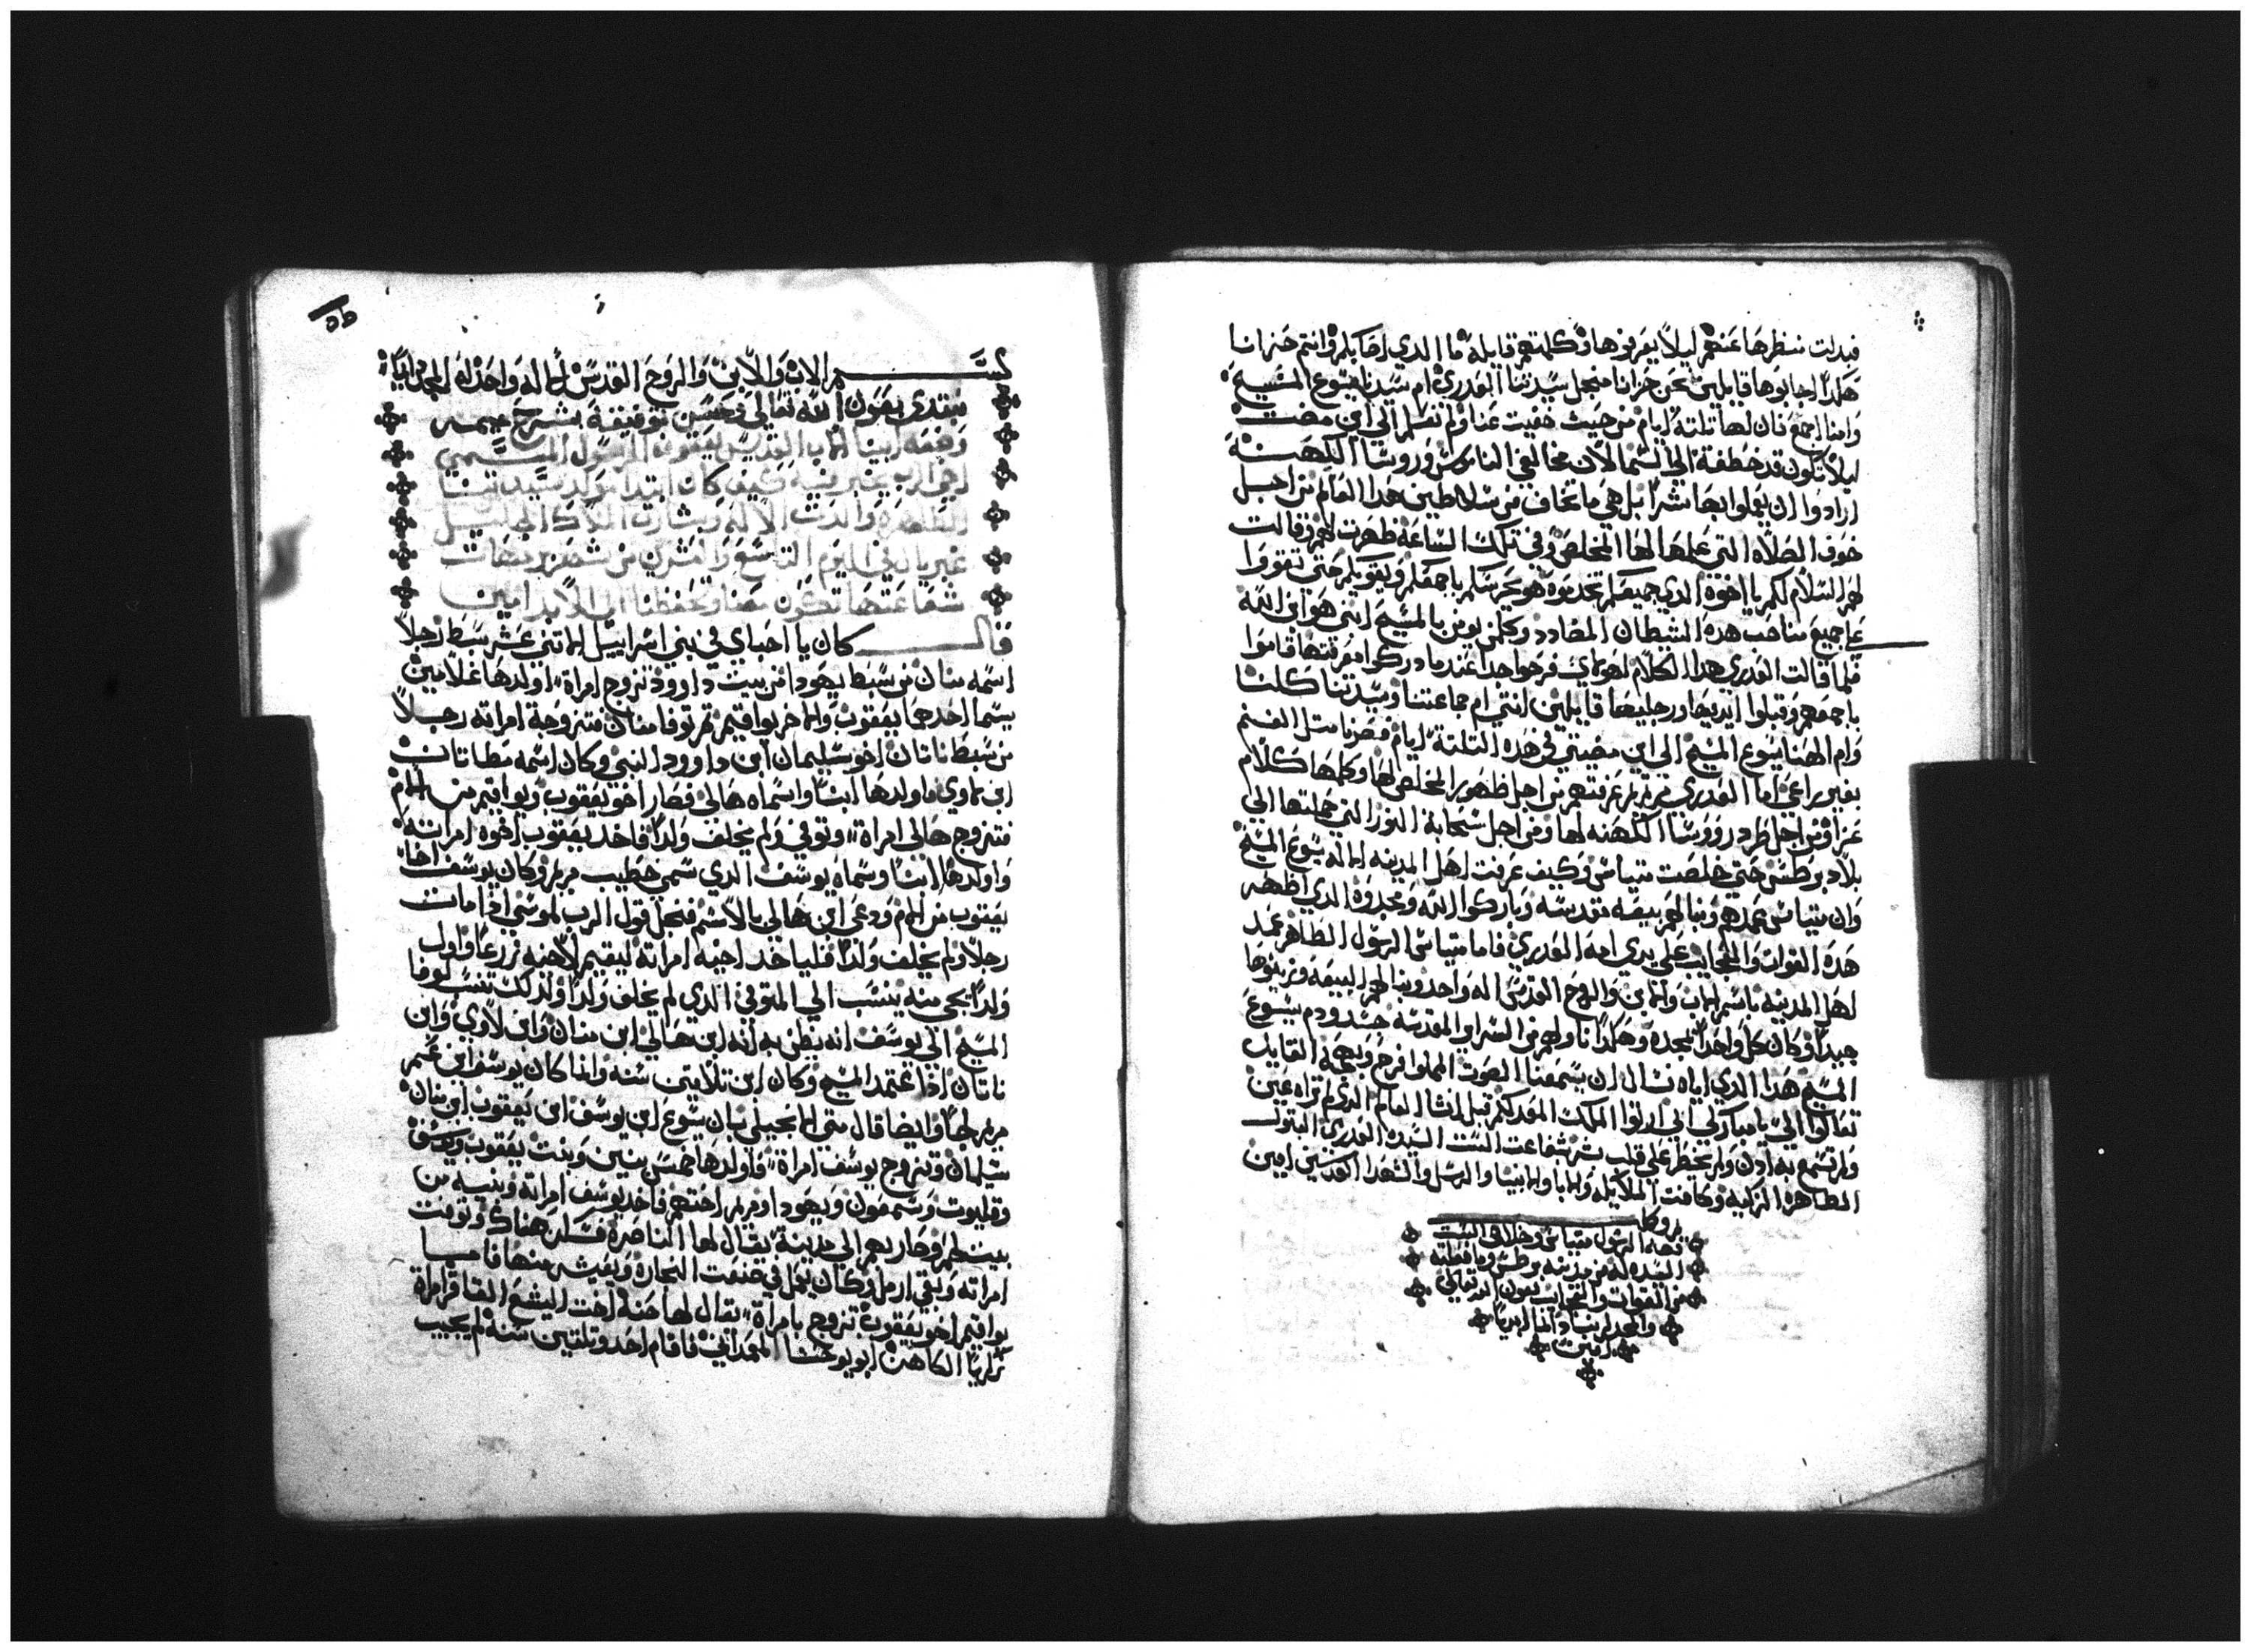 فبدلت منظرها عنهم ليلا يعرفوها وكلمتهم قايله ما الدي اصابكم وانتم حزانا
هكدا اجابوها قايلين نحن حزانا منجل سيدتنا العدري ام سيدنا يسوع المسيح
وامنا اجمع فان لها تلتة ايام من حيث خفيت عنا ولم نعلم الي اين مضت
ليلا تكون قد خطفة الي السما الان مخالفي الناموس وروسا الكهنة
ارادوا ان يعملوا بها شرا بل هي ما تخاف من سلاطين هدا العالم من اجل
خوف الصلاه التي علمها لها المخلص وفي تلك الساعة ظهرت لهم وقالت
لهم السلام لكم يا اخوة الدي جميعكم تخدموه هو يحرسكم باجمعكم ويقويكم حتي تقووا
علي جميع مناصب هده الشيطان المضادد وكلمن يومن بالمسيح ابني هو ابن الله
فلما قالت العدري هدا الكلام لهولاي فرحوا جدا عندما ادركوا معرفتها قاموا
باجمعهم وقبلوا ايديها ورجليها قايلين انتي ام جماعتنا وسيدتنا كلنا
وام الهنا يسوع المسيح الي اين مضيتي في هده التلتة ايام فصرنا متل الغنم
بغير راعي اما العدري مريم عرفتهم من اجل ظهور المخلص لها وكلمها كلام
عزا ومن اجل طرد رووسا الكهنه لها ومن اجل سحابة النور التي حملتها الي
بلاد برطس حتي خلصت متياس وكيف عرفت اهل المدينه الاله يسوع المسيح
وان متياس عمدهم وبنا لهم بيعه مقدسه وباركوا الله ومجدوه الدي اظهر
هده القوات والعجايب علي يدي امه العدري فاما متياس الرسول الطاهر عمد
اهل المدينه باسم الاب والابن والروح القدس اله واحد وبنا لهم البيعه وزينوها
جيدا وكان كل واحدا يمجده وهكدا ناولهم من السراير المقدسه جسد ودم يسوع
المسيح هدا الدي اياه نسال ان يسمعنا الصوت المملوا فرح وبهجة القايل
تعالوا الي يا مباركي ابي ارتوا الملك المعد لكم قبل انشا العالم الدي لم تراه عين
ولم تسمع به ادن ولم يخطر علي قلب بشر شفاعت الست السيده العدري البتول
الطاهره الزكيه وكافت الملايكه والابا والانبيا والرسل والشهدا القديسين امين
بدو كل
قصه الرسول متياس وخلاص الست
السيده له من مدينه برطس وما فعلته
من القوات والعجايب بعون الله تعالي
والمجد لربنا دايما ابديا
امين
بسم الاب والابن والروح القدس الاله واحد له المجد دايما
نبتدي بعون الله تعالي وحسن توفيقه بشرح ميمر
وضعه ابينا الاب القديس يعقوب الرسول المسمي
اخي الرب يخبر فيه كيف كان ابتدا مولد سيدتنا
الطاهره والدت الاله وبشارت الملاك الجليل
غبريال في اليوم التاسع والعشرين من شهر برمهات
شفاعتها تكون معنا وتحفظنا الي الابد امين
قال كان يا احباي في بني اسراييل الاتني عشر سبط رجلا
اسمه متان من سبط يهودا من بيت داوود تزوج امراة اولدها غلامين
يسما احدهما يعقوب والاخر يواقيم تم توفا متان فتزوجة امراته رجلا
من سبط ناتان اخو سليمان ابن داوود النبي وكان اسمه مطاتات
ابن لاوي فاولدها ابنا واسماه هالي فصار اخو يعقوب ويواقيم من الام
فتزوج هالي امراة وتوفي ولم يخلف ولدا فاخد يعقوب اخوه امراته
واولدها ابنا وسماه يوسف الدي سمي خطيب مريم وكان يوسف اخا
يعقوب من الام ودعي ابن هالي بالاسم فمنجل قول الرب لموسي ادا مات
رجلا ولم يخلف ولدا فلياخد اخيه امراته ليقيم لاخيه زرعا واول
ولدا يجي منه ينسب الي المتوفي الدي لم يخلف ولدا ولدلك ينسب لوقا
المسيح الي يوسف انه يظن به انه ابن هالي ابن متان وابن لاوي وابن
ناتان ادا اعتمد المسيح وكان ابن تلاتين سنه وانما كان يوسف ابن عم
مريم لحا وايضا قال متي الانجيلي بان يسوع ابن يوسف ابن يعقوب ابن متان
سليمان وتزوج يوسف امراة فاولدها خمس بنين وبنت يعقوب ويوسف
وقليوت وسمعون ويهودا ومريم اختهم فاخد يوسف امراته وبنيه من
بيت لحم وصار بهم الي مدينة يقال لها الناصرة فسكن هناك وتوفت
امراته وبقي ارمل وكان يعمل في صنعت النجارة ويعيش منها فاما
يواقيم اخو يعقوب تزوج بامراة يقال لها حنه اخت اليشع العاقر امراة
زكريا الكاهن ابو يوحنا المعمداني فاقام احد وتلتين سنه لم يجيب